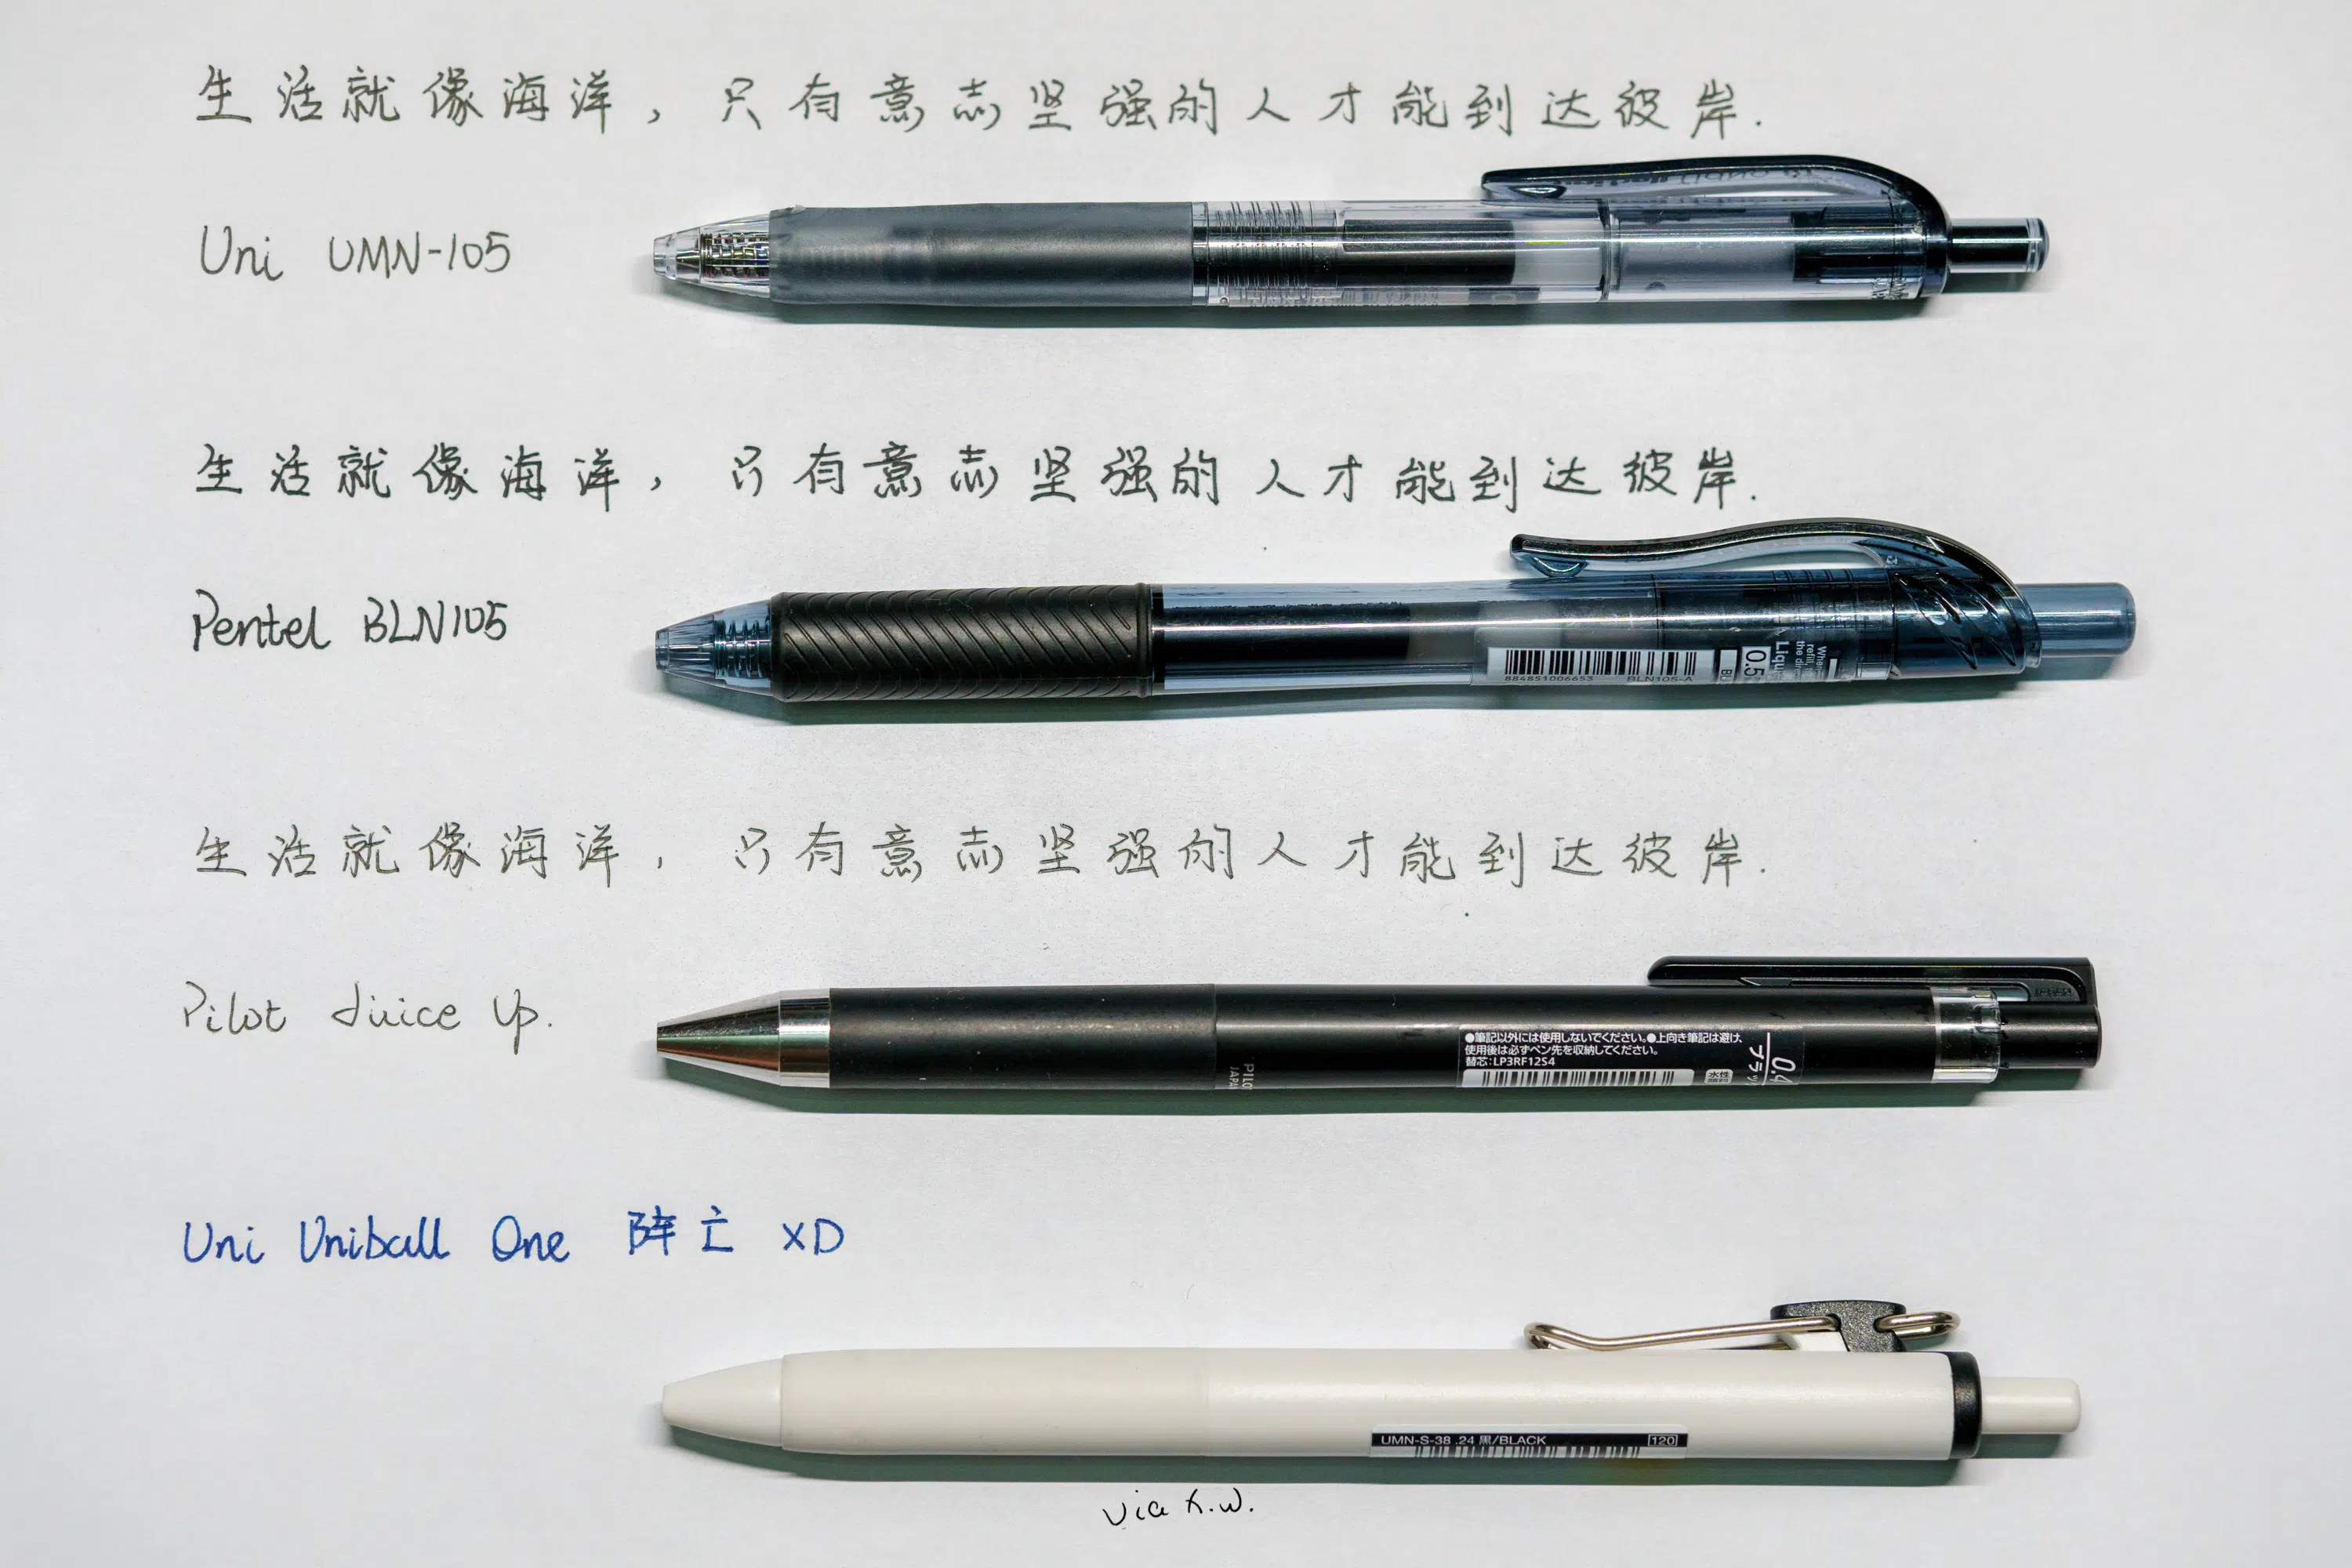 生活就像海洋，只有意志坚强的人才能到达彼岸.
Uni UMN-105
生活就像海洋，只有意志坚强的人才能到达彼岸.
884851006653 BLN105-A
0.5
Pentel BLN105
生活就像海洋，只有意志坚强的人才能到达彼岸.
Pilot Juice up.
●筆記以外には使用しないでください。●上向き筆記は避け、
使用後は必ずペン先を収納してください。
替芯:LP3RF12S4
水性
0.4
Uni Uniball One 阵亡 XD
UMN-S-38 .24 黒/BLACK 120
via K.W.